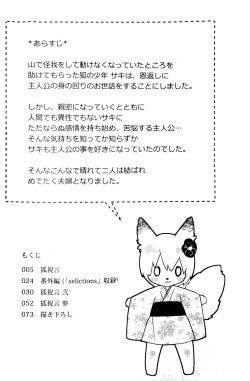 *あらすじ*
山で怪我をして動けなくなっていたところを
助けてもらった狐の少年 サキは、恩返しに
主人公の身の回りのお世話をすることにしました。
しかし、親密になっていくとともに
人間でも異性でもないサキに
ただならぬ感情を持ち始め、苦悩する主人公…
そんな気持ちを知ってか知らずか
サキも主人公の事を好きになっていたのでした。
そんなこんなで晴れて二人は結ばれ
めでたく夫婦となりました。
もくじ
005 狐祝言
024 番外編(「selictions」収録)
030 狐祝言 弐
052 狐祝言 参
073 描き下ろし